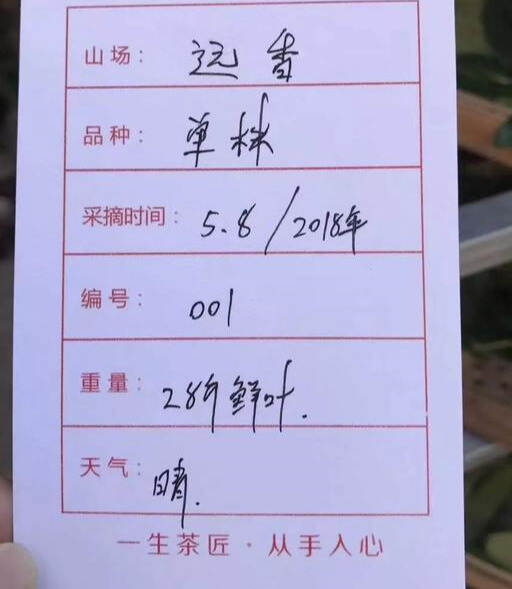 山场：远香
品种：单株
采摘时间：5.8/2018年
编号：001
重量：28斤鲜叶.
天气：晴.
一生茶匠·从手入心